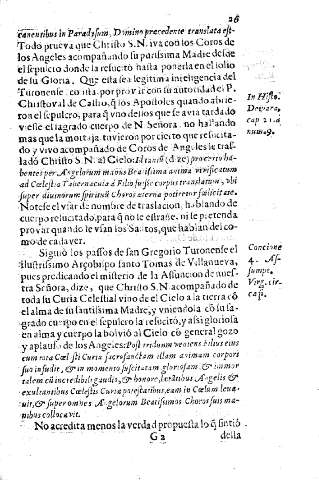 26
canentibus in Paradysum, Domino precedente translata est.
Todo prueva que Christo S.N. iva con los Coros de
los Angeles acompañando su purissima Madre desde
el sepulcro donde la resucitò hasta ponerla en el folio
de su Gloria. Que esta sea legitima inteligencia del
Turonense consta, por provar con su autoridad el P.
Christoval de Castro, q̃ los Apostoles quando abrie-
ron el sepulcro, para q̃ vno dellos que se avia tardado
viesse el sagrado cuerpo de N. Señora. no hallando
mas que la mortaja, tuvieron por cierto que resucita-
do y vivo acompañado de Coros de Angeles le tras-
ladò Christo S.N. al Cielo:
per Angelorum manus Beatissima anima vivificatum
ad Cælestia Tabernacula à Filio suisse corpus translatum, vbi
super divinorum spirituũ Choros æterna potiretur fœlicitate.
Notese el vsar de nombre de traslacion, hablando de
cuerpo resucitado, para q̃ no le estrañe, ni se pretenda
provar quando le vsan los Santos, que hablan del co-
mo de cadaver.
In Histo.
Deipara,
cap 21. à
num. 9.
Siguiò los passos de san Gregorio Turonense el
Ilustrissimo Arçobispo santo Tomas de Villanueva,
pues predicando el misterio de la Assuncion de nues-
tra Señora, dize, que Christo S.N. acompañado de
toda su Curia Celestial vino del Cielo a la tierra cõ
el alma de su santissima Madre, y vniendola cõ su sa-
grado cuerpo en el sepulcro la resucitò, y assi gloriosa
en alma y cuerpo la bolviò al Cielo cõ general gozo
y aplauso de los Angeles: Post triduum veniens filius eius
cum tota Cœlesti Curia sacrosanctam illam animam corpori
suo infudit, & in momento suscitatam gloriosam, & immor
talem cũ incredibili gaudio, & honore, lætãtibus Angelis &
exultantibus Cœlestis Curiæ potestatibus, eam in Cœlum leva-
vit, & super omnes Angelorum Beatissimos Choros suis ma-
nibus collocavit.
Concione
4. As-
sumpt.
Virg. cir-
ca fi.
No acredita menos la verdad propuesta lo q̃ sintiò
G 2 della